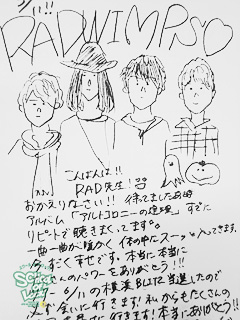 RADWIMPS♡
こんばんは!!
RAD先生!
おかえりなさい!! 待てました
アルバム「アルトコロニーの定理」すでに
リピートで聴きまくってます。
一曲一曲が暖かく体の中にスーッと入ってきます。
今、すごく幸せです。本当に本当に
さんのパワーをありがとう!!!
6/11の横浜BLITZ当選したので
会いに行きます!私からもたくさんの
行きます!本当にありがとう!!